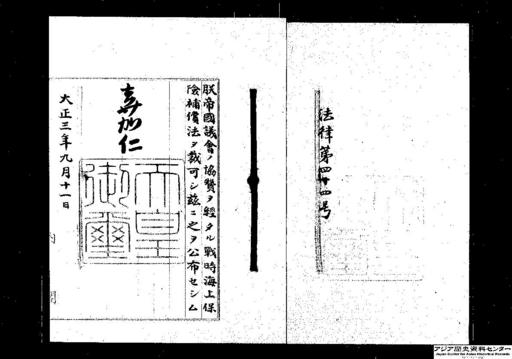 法律第四十四号
朕帝國議會ノ協賛ヲ經タル戰時海上保
險補償法ヲ裁可シ茲ニ之ヲ公布セシム
嘉仁
天皇
御璽
大正三年九月十一日
内
閣
アジア歴史資料センター
Japan Center for Asian Historical Records